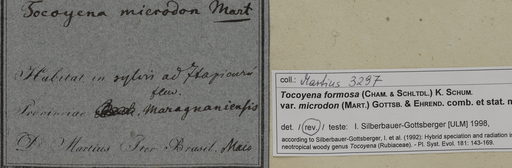 Tocoyena microdon Mart
Habitat in sylvis ad Itapicurú
flum.
Provinciae Maragnaniensis
D. Martius Iter Brasil. Maio
coll.: Martius 3297
Tocoyena formosa (CHAM. & SCHLTDL.) K. SCHUM.
var. microdon (MART.) GOTTSB. & EHREND. comb. et stat. n
det. / rev. / teste: I. Silberbauer-Gottsberger [ULM] 1998,
according to Silberbauer-Gottsberger, I. et al. (1992): Hybrid speciation and radiation i
neotropical woody genus Tocoyena (Rubiaceae). - Pl. Syst. Evol. 181: 143-169.